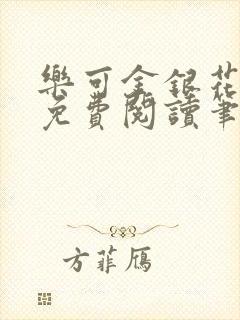 樂可金銀花
免費閱讀筆
方菲鴈